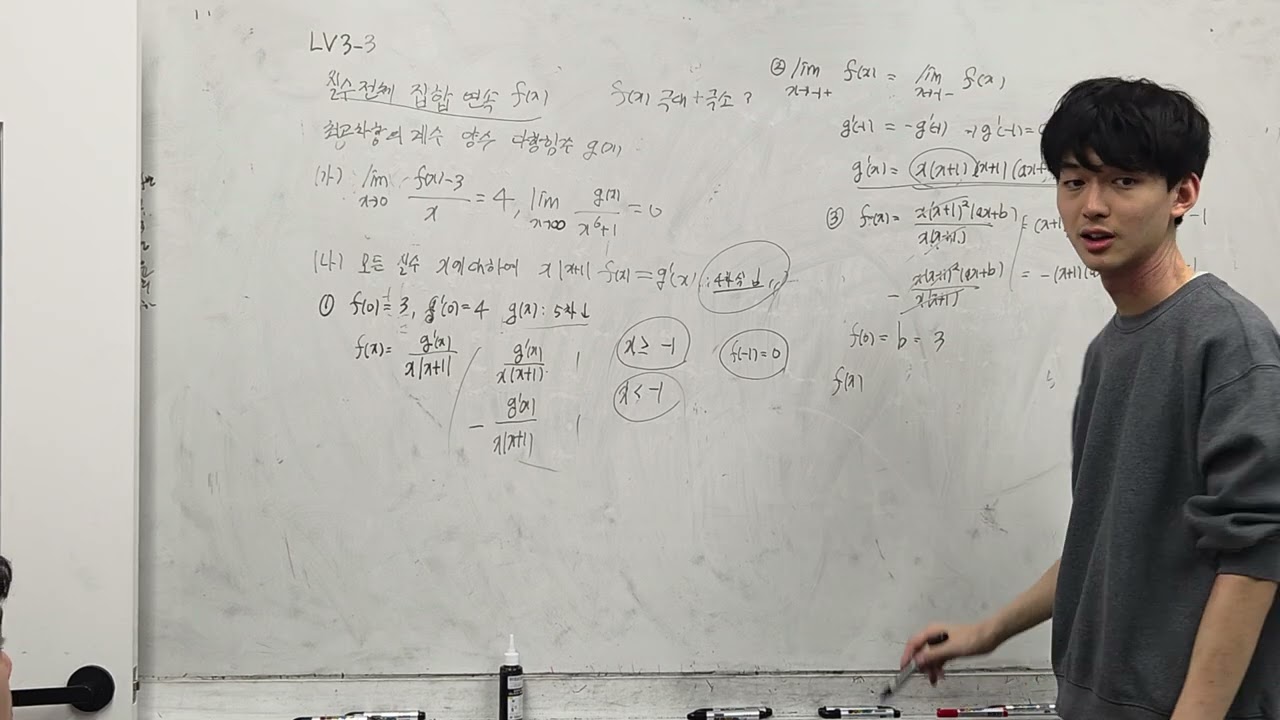 LV3-3
실수 전체 집합 연속 f(x) f(x) 극대 + 극소 ?
최고차항의 계수 양수 다항함수 g(x)
(가) lim x→0 f(x)-3 / x = 4, lim x→∞ g(x) / x⁶+1 = 0
(나) 모든 실수 x에 대하여 x|x+1| f(x) = g'(x)
① f(0) = 3, g'(0)=4 g(x) : 5차↓
f(x) = g'(x) / x|x+1|
g'(x) / x(x+1) x ≥ -1 f(-1)=0
- g'(x) / x(x+1) x < -1
② lim x→-1+ f(x) = lim x→-1- f(x)
g'(-1) = -g'(-1) → g'(-1)=
g'(x) = x(x+1)(x+1)(ax+
③ f(x) = x(x+1)²(ax+b) / x(x+1) = (x+1
- x(x+1)²(ax+b) / x(x+1) = -(x+1)(
f(0) = b = 3
f(x)